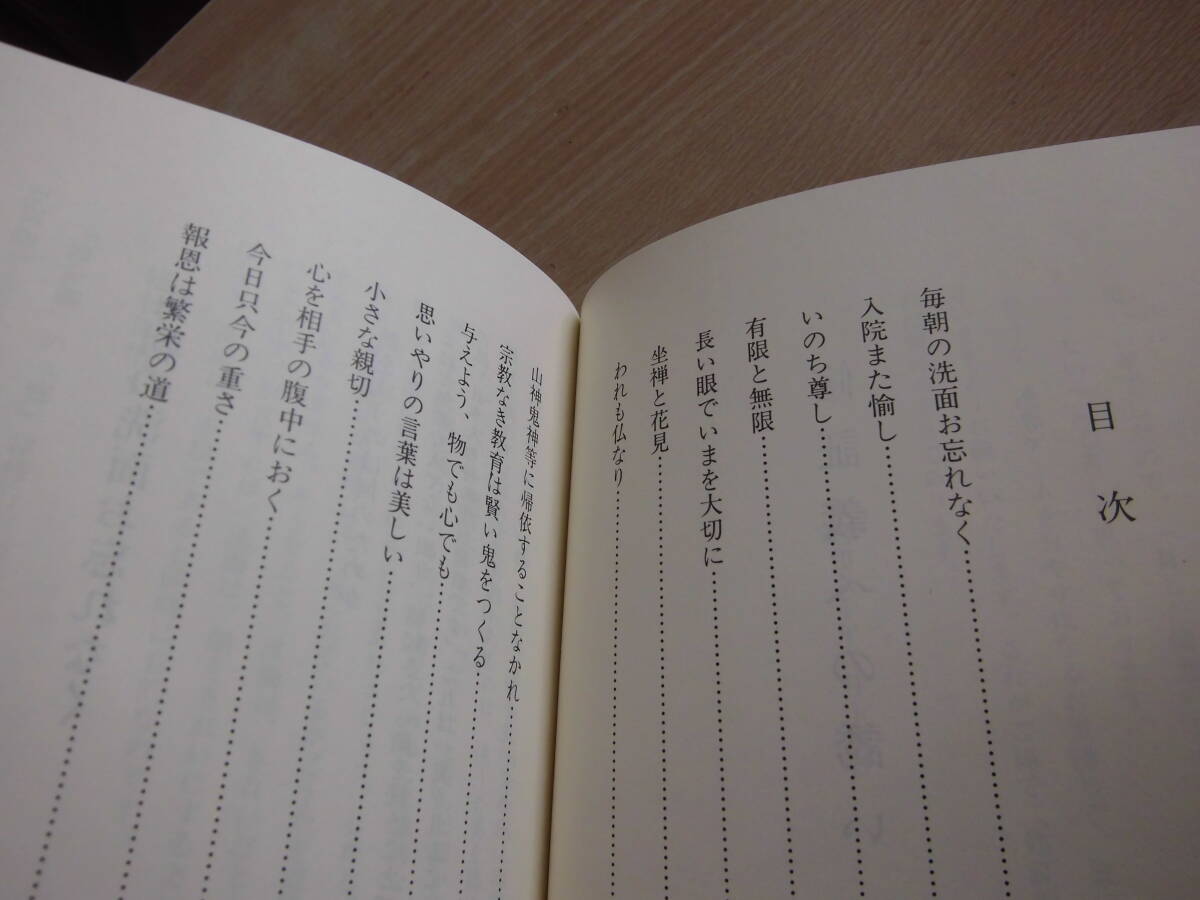 目次
毎朝の洗面お忘れなく
入院また愉し
いのち尊し
有限と無限
長い眼でいまを大切に
坐禅と花見
われも仏なり
山神鬼神等に帰依することなかれ
宗教なき教育は賢い鬼をつくる
与えよう、物でも心でも
思いやりの言葉は美しい
小さな親切
心を相手の腹中におく
今日只今の重さ
報恩は繁栄の道